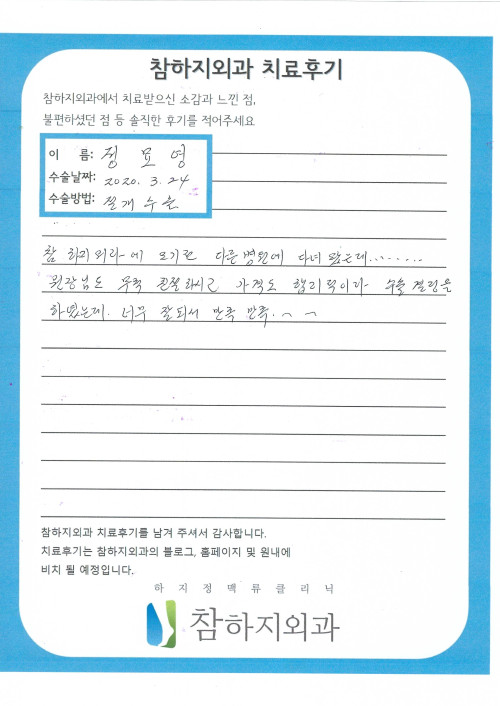 참하지외과 치료후기
참하지외과에서 치료받으신 소감과 느낀 점,
불편하셨던 점 등 솔직한 후기를 적어주세요
이 름: 정 묘 영
수술날짜: 2020. 3. 24
수술방법: 절개 수술
참 하지외과에 오기전 다른병원에 다녀 봤는데.........
원장님도 무척 친절하시고 가격도 합리적이라 수술 결정을
하였는데. 너무 잘되서 만족 만족. ~ ~
참하지외과 치료후기를 남겨 주셔서 감사합니다.
치료후기는 참하지외과의 블로그, 홈페이지 및 원내에
비치 될 예정입니다.
하지정맥류클리닉
참하지외과